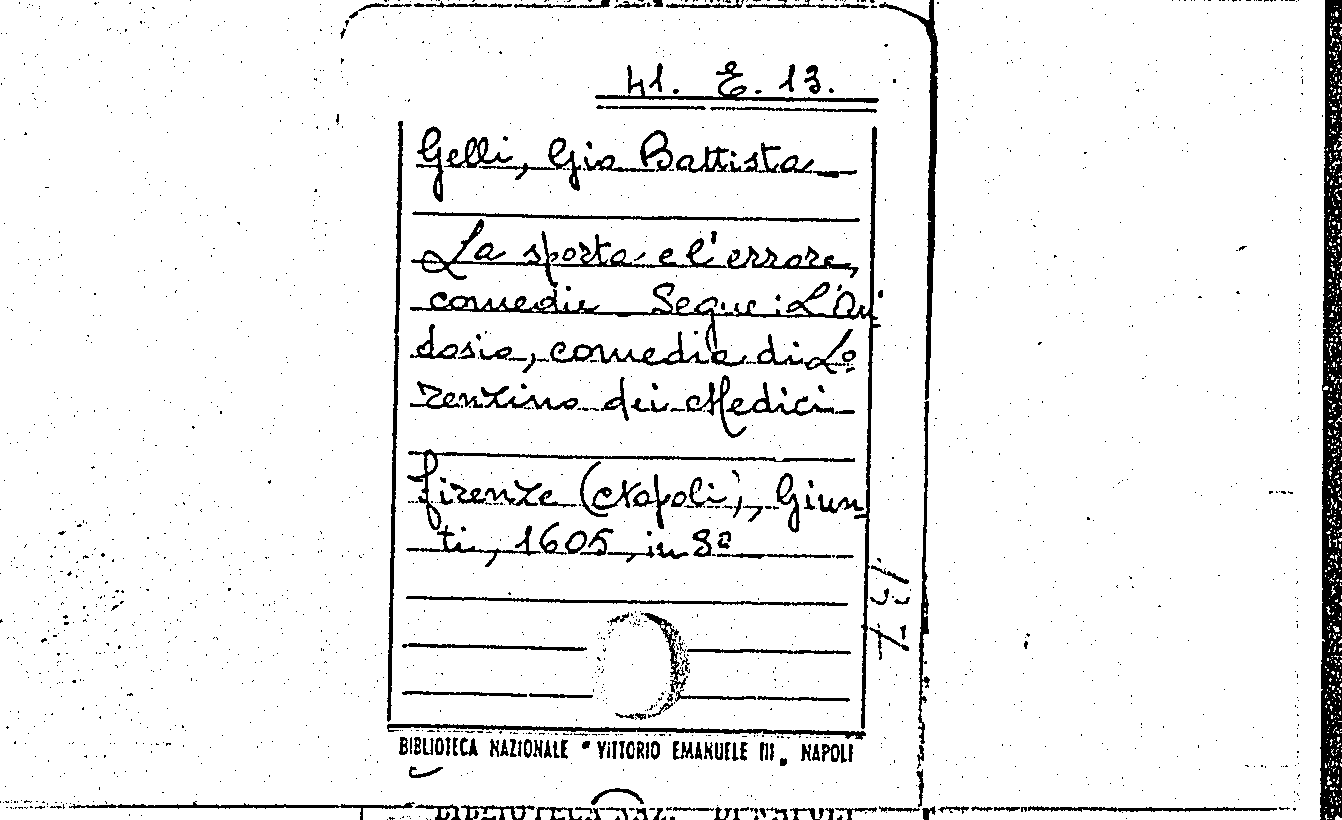 41. E. 13.
Gelli, Gio Battista
La sporta e l'errore,
comedie _ Segue: L'Ari-
dosio, comedia di Lo-
renzino dei Medici
Firenze (Napoli), Giun-
ti, 1605, in 8º
BIBLIOTECA NAZIONALE "VITTORIO EMANUELE III„ NAPOLI
BIBLIOTECA NAZ. DI NAPOLI